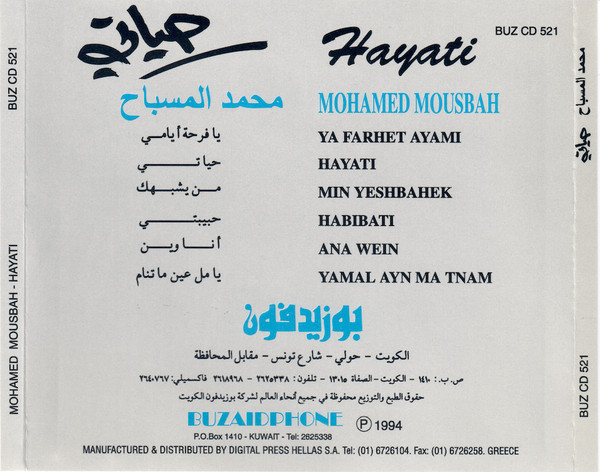 BUZ CD 521
MOHAMED MOUSBAH - HAYATI
حياتي
Hayati
BUZ CD 521
محمد المسباح
MOHAMED MOUSBAH
يا فرحة أيامي
YA FARHET AYAMI
حياتي
HAYATI
من يشبهك
MIN YESHBAHEK
حبيبتي
HABIBATI
أنا وين
ANA WEIN
يا مل عين ما تنام
YAMAL AYN MA TNAM
بوزيدفون
الكويت - حولي - شارع تونس - مقابل المحافظة
ص.ب.: ١٤١٠ - الكويت - الصفاة ١٣٠١٥ - تلفون: ٢٦٢٥٣٣٨ - ٢٦١٨٩٦٨ فاكسميلي: ٢٦٤٠٧٦٧
حقوق الطبع والتوزيع محفوظة في جميع أنحاء العالم لشركة بوزيدفون الكويت
BUZAIDPHONE
Ⓟ 1994
P.O.Box 1410 - KUWAIT - Tel: 2625338
MANUFACTURED & DISTRIBUTED BY DIGITAL PRESS HELLAS S.A. Tel: (01) 6726104. Fax: (01) 6726258. GREECE
محمد المسباح
حياتي
BUZ CD 521